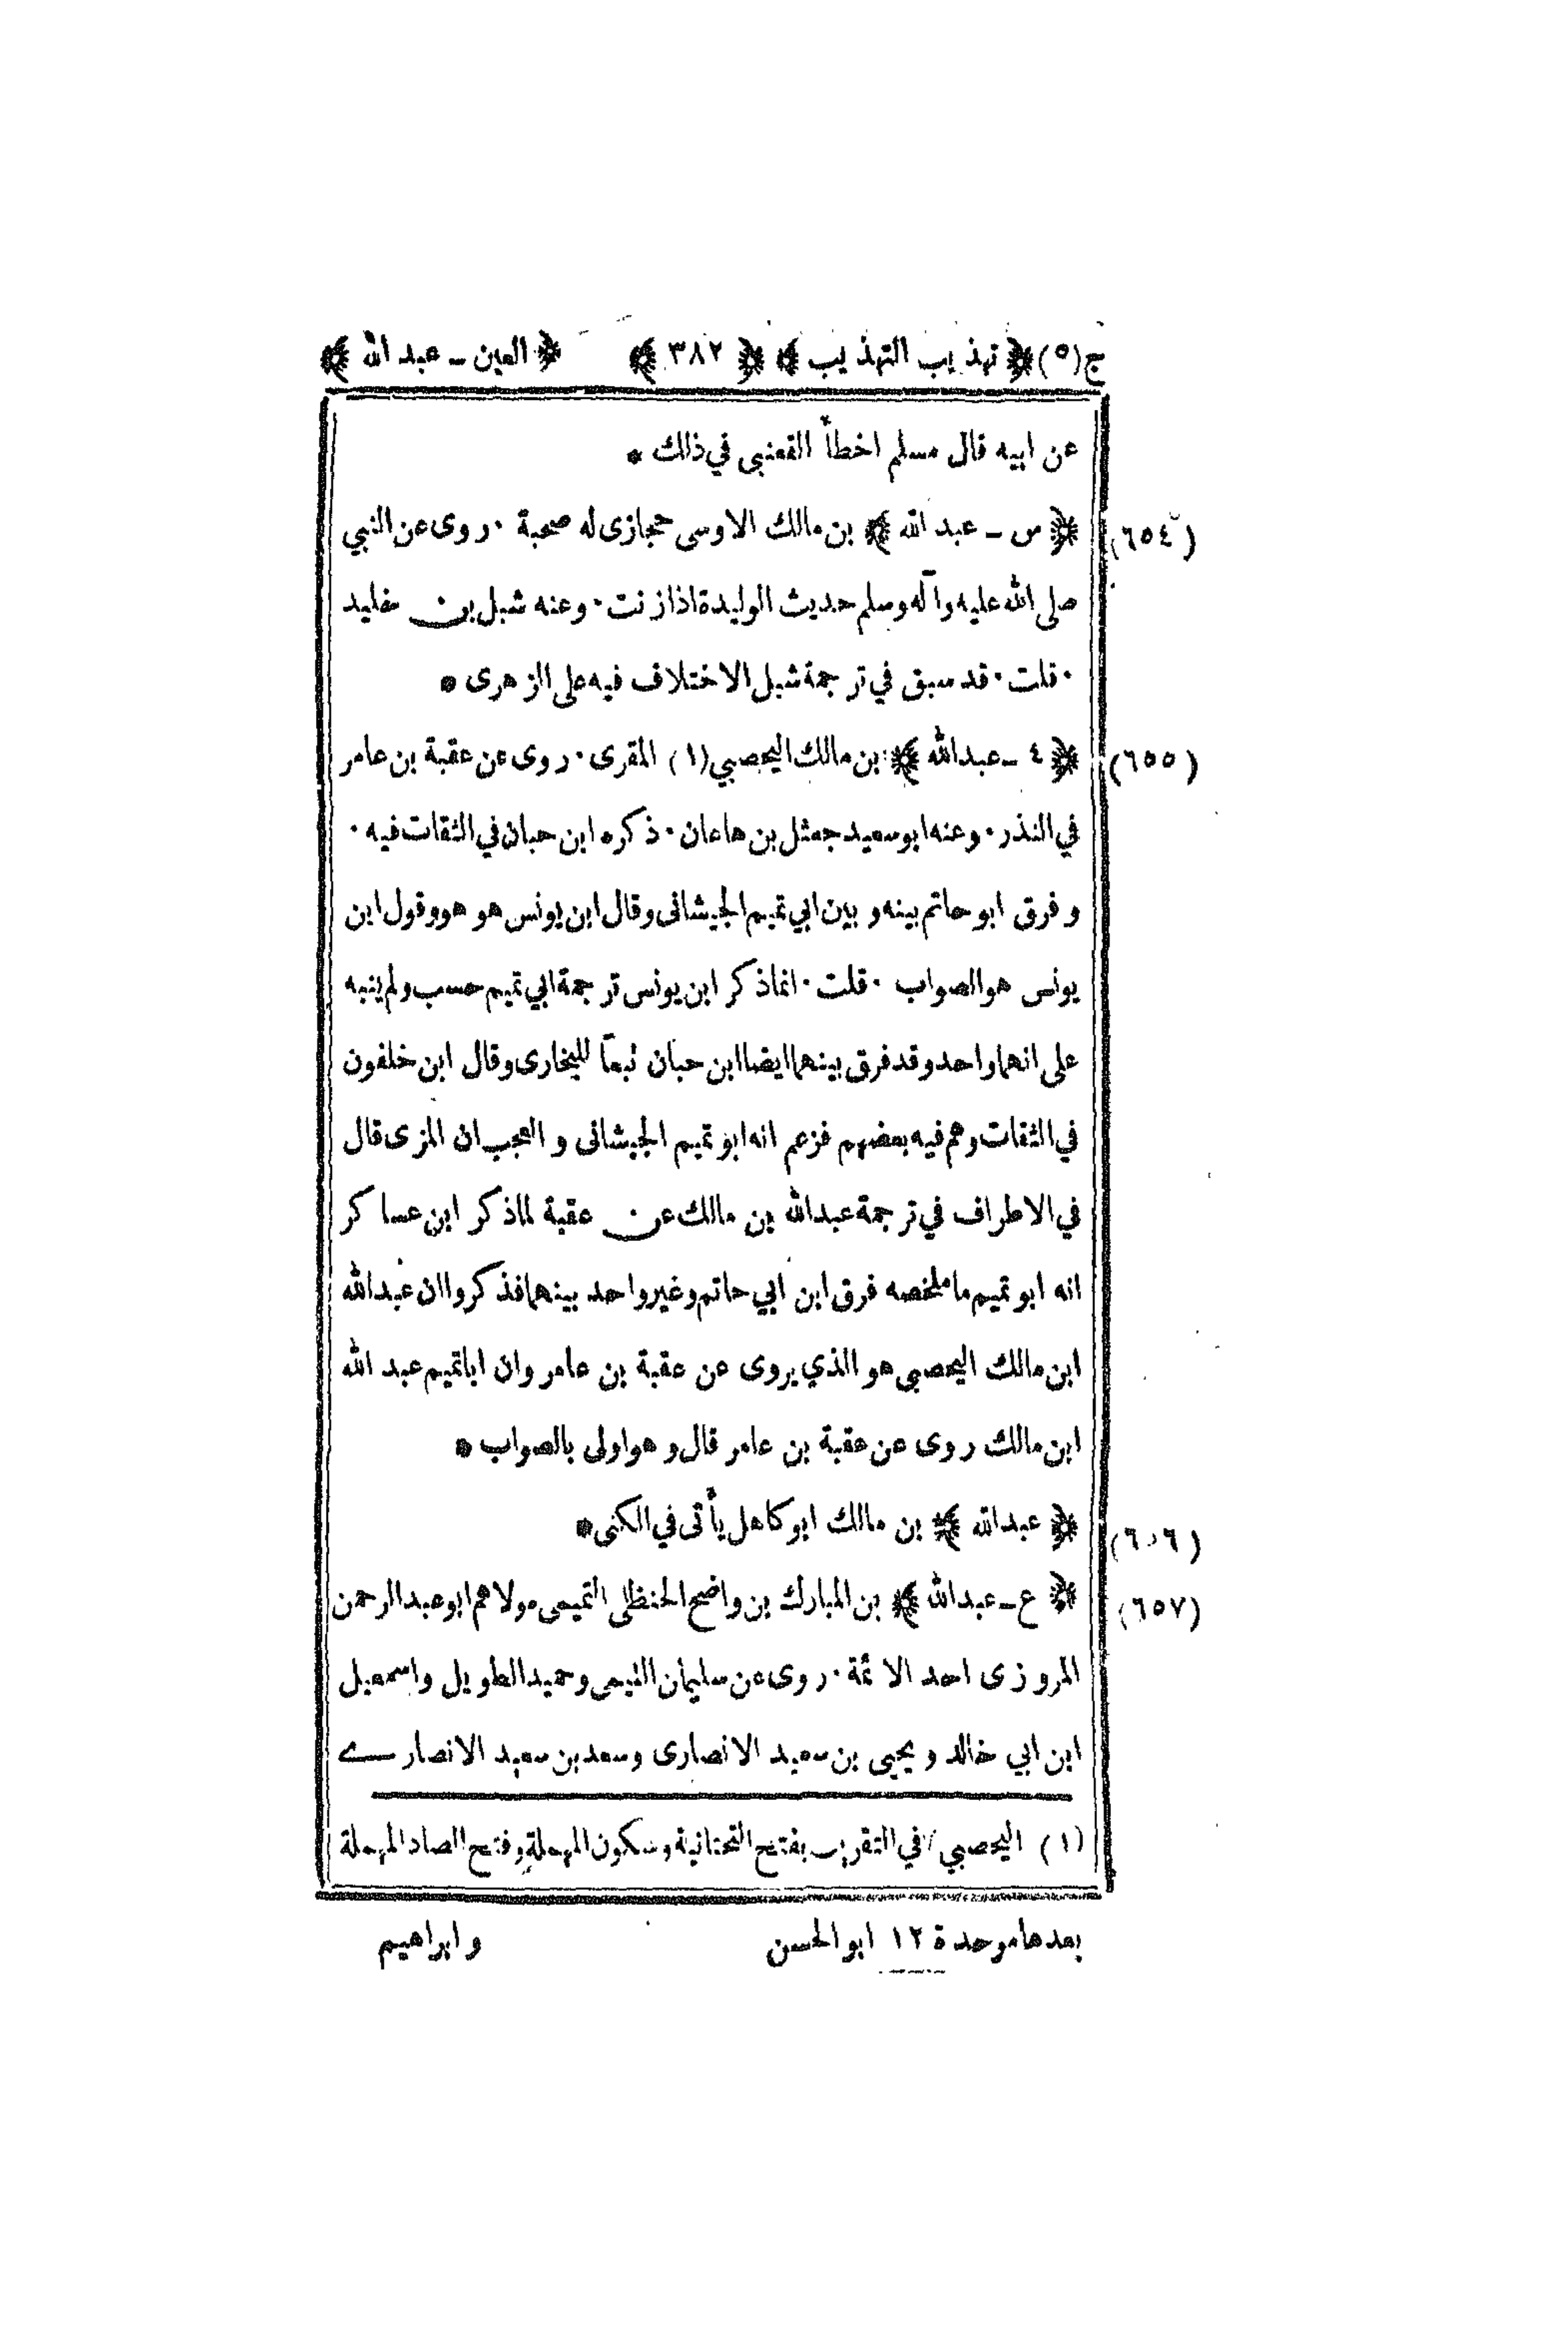 ج (٥) ﴿ تهذيب التهذيب ﴾ ﴿ ٣٨٢ ﴾ ﴿ العين ـ عبد الله ﴾
عن ابيه قال مسلم اخطأ القعنبى في ذلك *
(٦٥٤) ﴿ س ـ عبد الله ﴾ بن مالك الاوسى حجازى له صحبة · روى عن النبي
صلى الله عليه وآله وسلم حديث الوليدة اذا زنت · وعنه شبل بن خليد
· قلت · قد سبق في ترجمة شبل الاختلاف فيه على الزهرى *
(٦٥٥) ﴿ ٤ ـ عبدالله ﴾ بن مالك اليحصبي (١) المقرى · روى عن عقبة بن عامر
في النذر · وعنه ابو سعيد جعثل بن هاعان · ذكره ابن حبان في الثقات فيه ·
و فرق ابو حاتم بينه و بين ابي تميم الجيشانى وقال ابن يونس هو هو وقول ابن
يونس هو الصواب · قلت · انما ذكر ابن يونس ترجمة ابي تميم حسب ولم ينبه
على انهما واحد وقد فرق بينهما ايضا ابن حبان تبعا للبخارى وقال ابن خلفون
في الثقات وهم فيه بعضهم فزعم انه ابو تميم الجيشانى و العجب ان المزى قال
في الاطراف في ترجمة عبدالله بن مالك عن عقبة لما ذكر ابن عساكر
انه ابو تميم ما ملخصه فرق ابن ابي حاتم وغير واحد بينهما فذكروا ان عبدالله
ابن مالك اليحصبى هو الذي يروى عن عقبة بن عامر وان اباتميم عبد الله
ابن مالك روى عن عقبة بن عامر قال و هو اولى بالصواب *
(٦٥٦) ﴿ عبدالله ﴾ بن مالك ابو كاهل يأتى في الكنى *
(٦٥٧) ﴿ ع ـ عبدالله ﴾ بن المبارك بن واضح الحنظلى التميمى مولاهم ابو عبد الرحمن
المروزى احد الائمة · روى عن سليمان التيمى وحميد الطويل واسمعيل
ابن ابي خالد و يحيى بن سعيد الانصارى وسعد بن سعيد الانصارى
(١) اليحصبي في التقريب بفتح التحتانية وسكون المهملة وفتح الصاد المهملة
بعدها موحدة ١٢ ابو الحسن
و ابراهيم